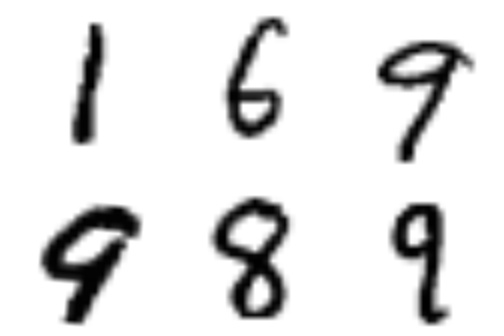 1 6 9
9 8 9